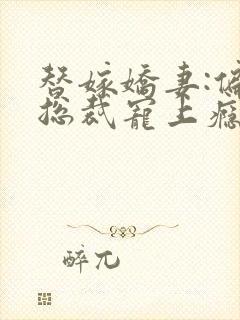 替嫁嬌妻:偏
總裁寵上癮
醉兀